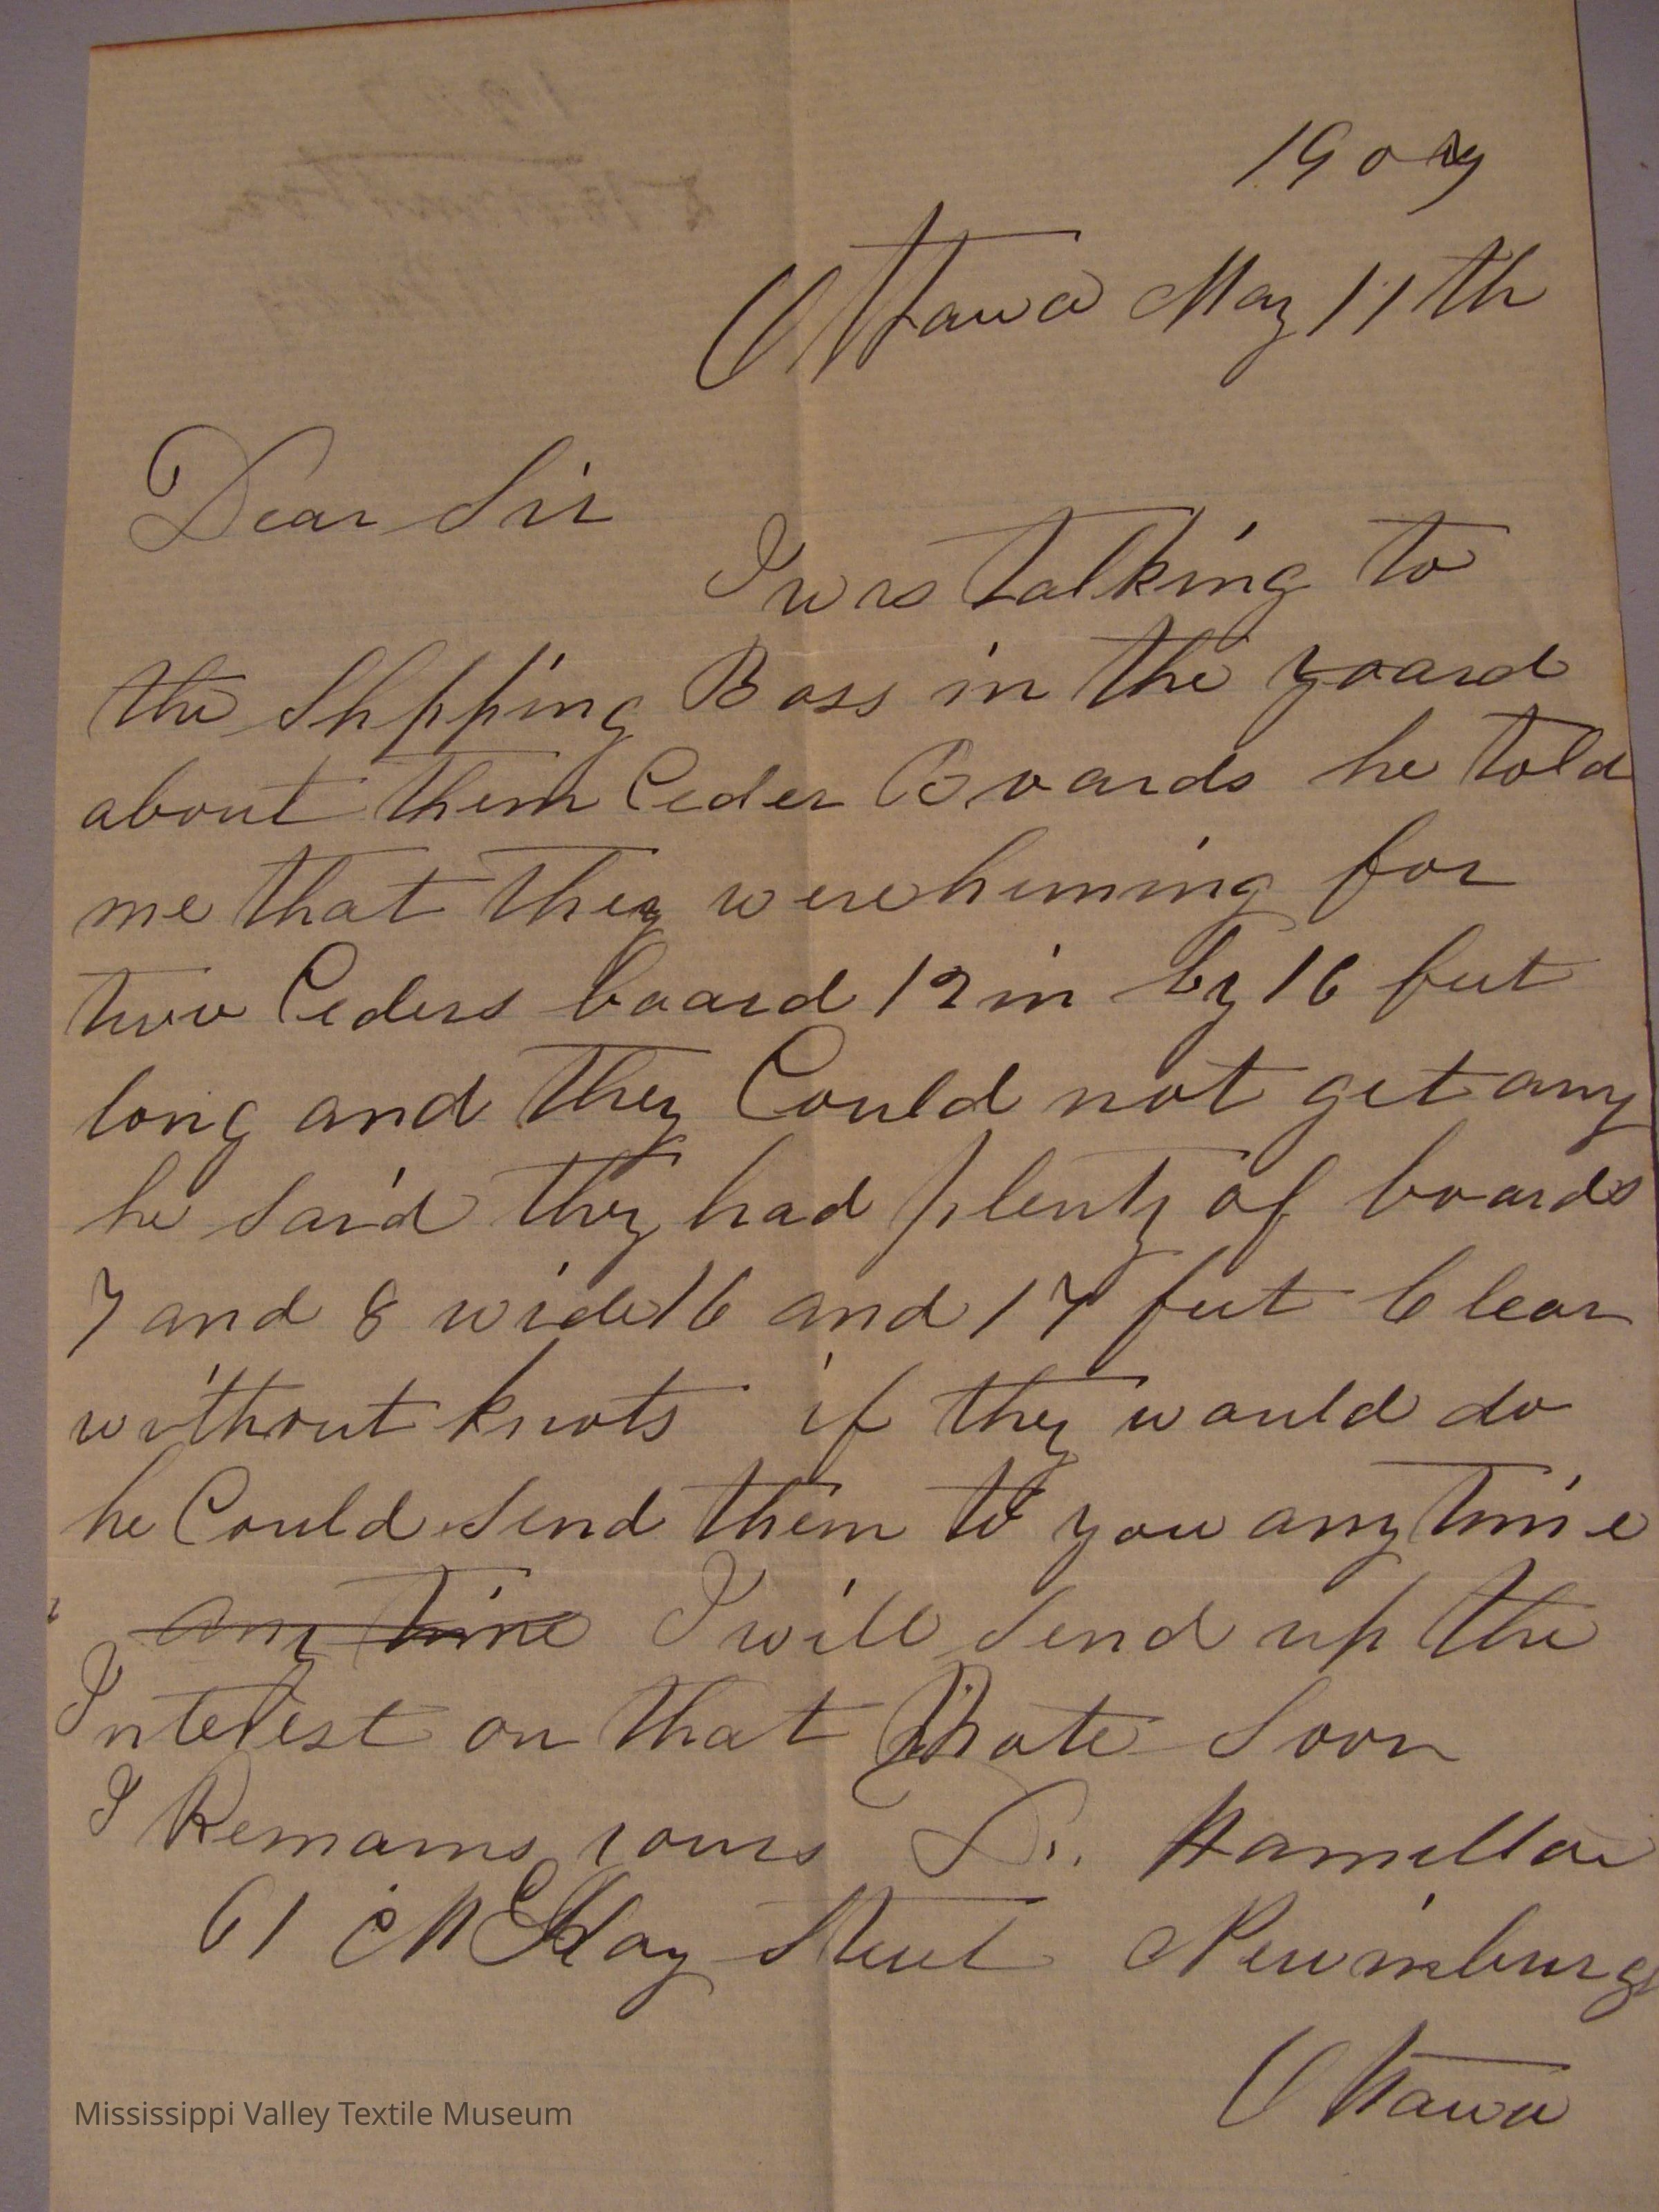 Ottawa May 11th
Dear Sir
I was talking to
the Shpping Boss in the yoard
about them Ceder Boards he told
me that they were huming for
two Ceders board 12 in by 16 feet
long and they Could not get any
he said they had plenty of boards
7 and 8 wide 16 and 17 feet Clear
without knots if they would do
he Could send them to you any time
any time I will send up the
Interest on that Note Soon
I Remains yours D. Hamilton
61 Street
Ottawa
Mississippi Valley Textile Museum